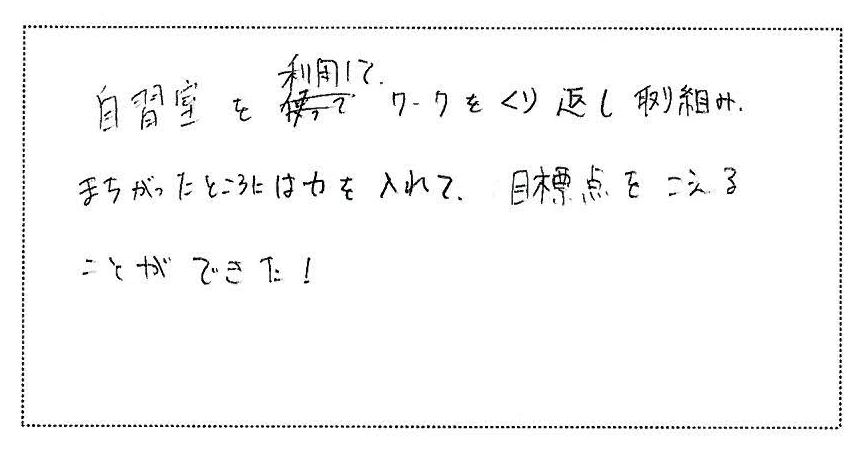 自習室を利用して、ワークをくり返し取り組み、
まちがったところには力を入れて、目標点をこえる
ことができた！